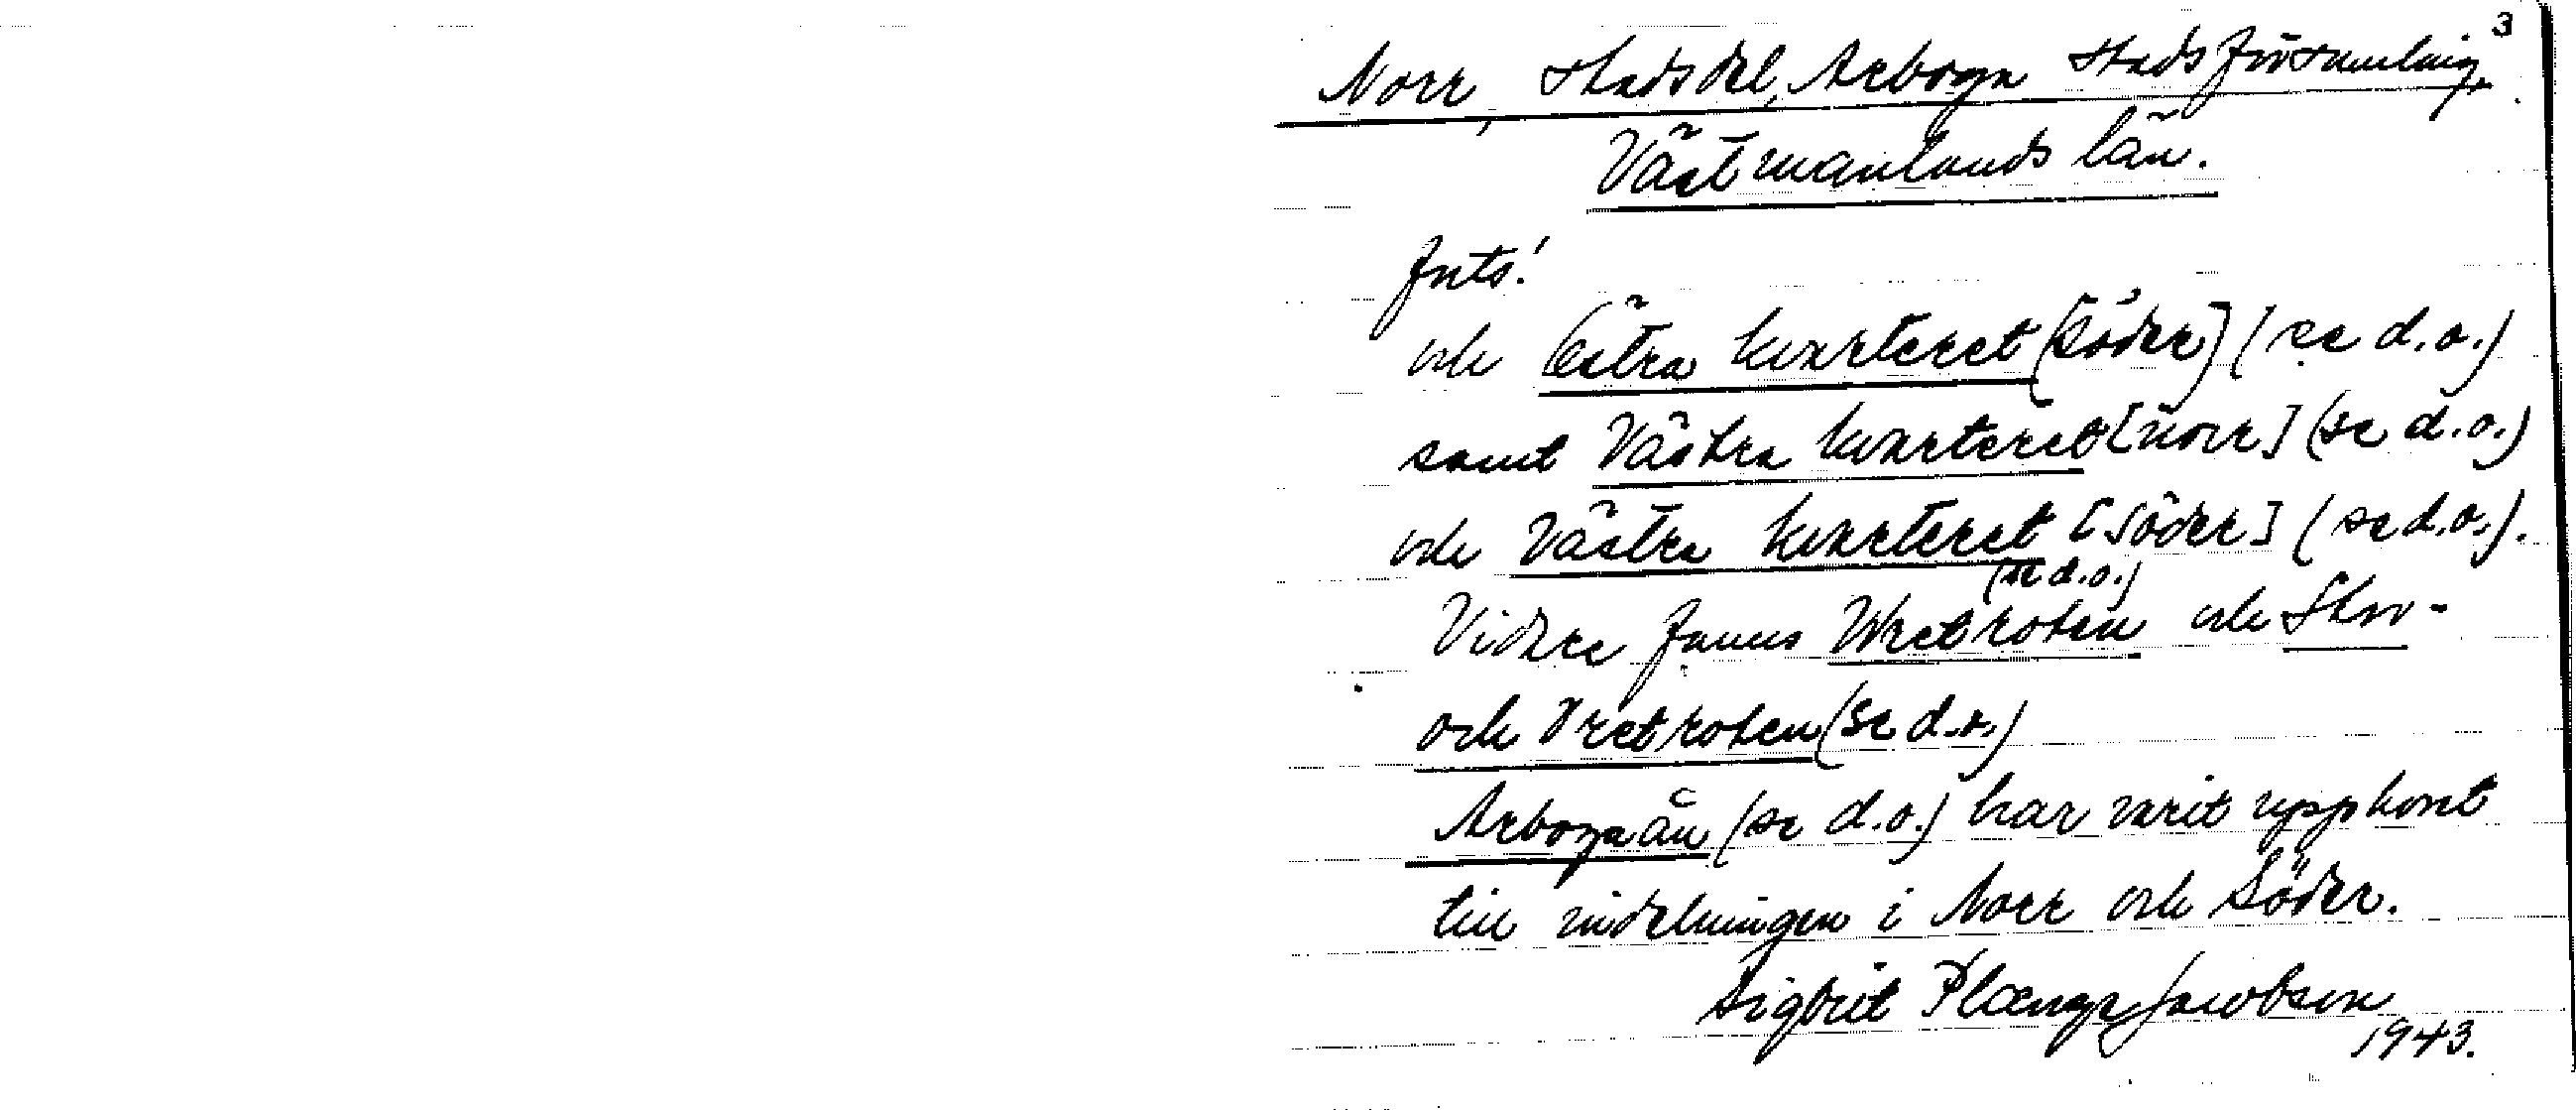 3
Norr, Stadsdel, Arboga Stadsförsamling,
Västmanlands län.
forts!
och Östra kvarteret [Söder] (se d.o.)
samt Västra kvarteret [norr] (se d.o.)
och Västra kvarteret [Söder] (se d.o.).
(se d.o.)
Vidare fanns Wretroten och Skov-
och Vretroten (se d.o.)
Arbogaån (se d.o.) har varit upphovet
till indelningen i Norr och Söder.
Sigbrit Plænge Jacobson
1943.